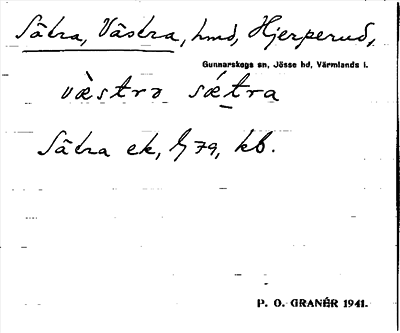 Sätra, Västra, hmd, Hjerperud,
Gunnarskogs sn, Jösse hd, Värmlands l.
væ̀strə sǽtra
Sätra ek, 79, kb.
P. O. GRANÉR 1941.